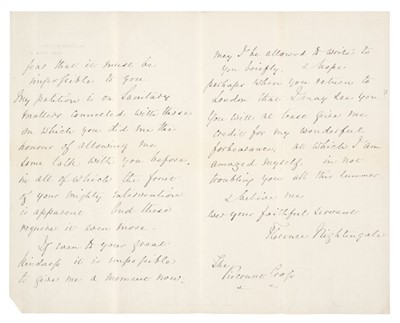 fear that it must be
impossible to you
My petition is on Sanitary
matters connected with those
on which you did me the
honour of allowing me
some talk with you before,
in all of which the fruit
of your mighty intervention
is apparent And these
require it even more.
If even to your great
kindness it is impossible
to give me a moment now,
may I be allowed to write to
you briefly. & hope
perhaps when you return to
London that I may see you?
You will at least give me
credit for my wonderful
forbearance, at which I am
amazed myself, in not
troubling you all this summer
& believe me
ever your faithful servant
Florence Nightingale
The
Viscount Cross